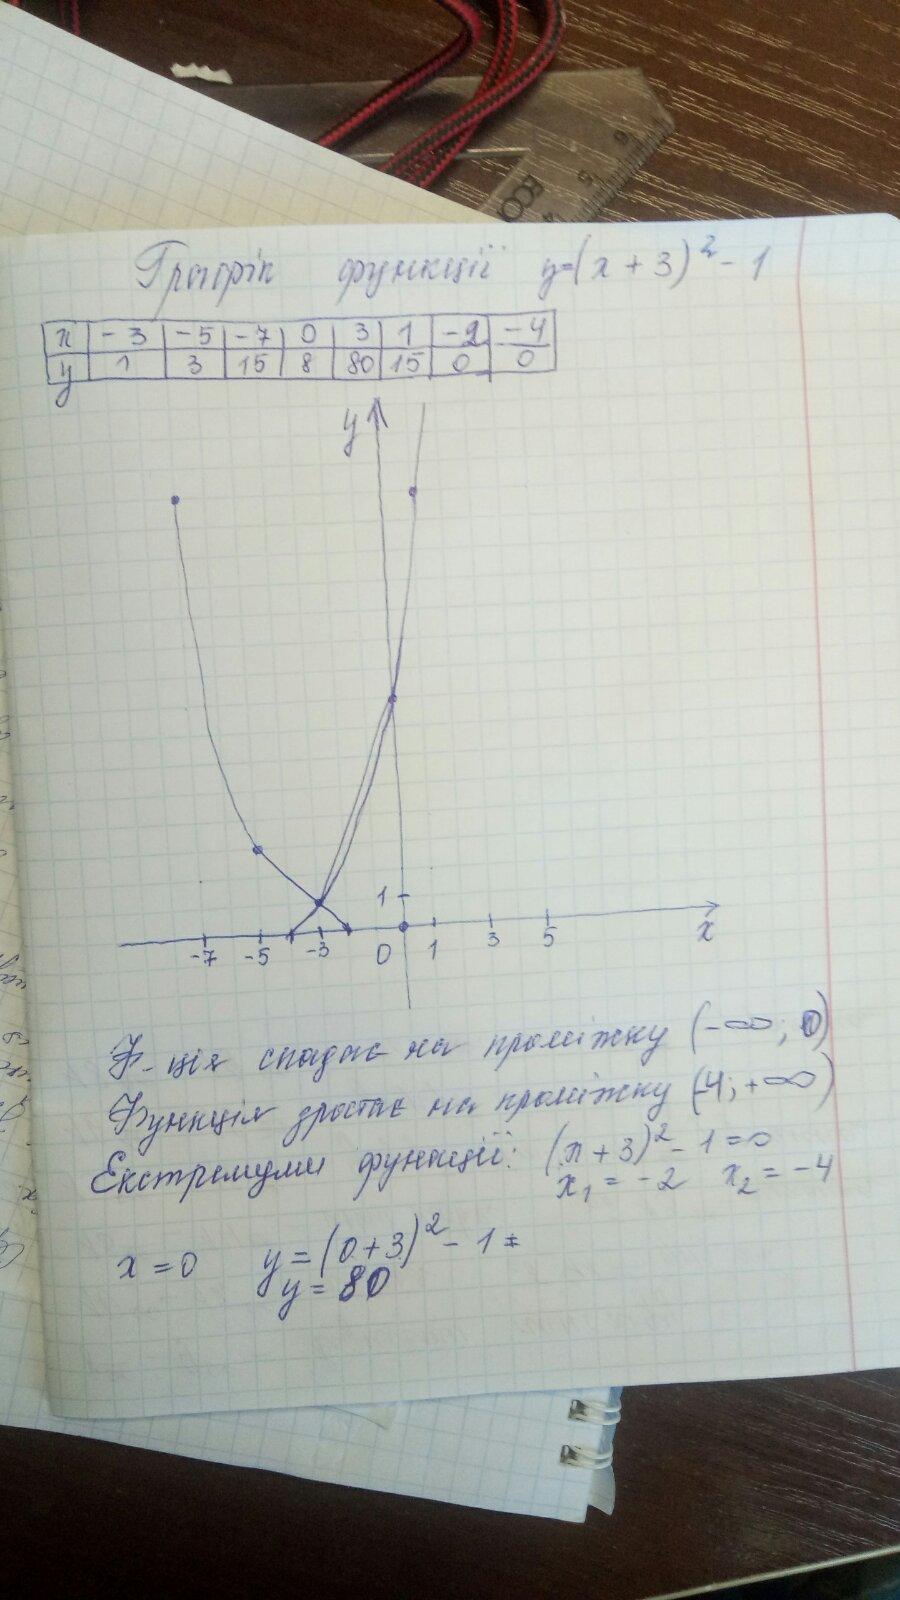 Графік функції y=(x+3)²-1
x -3 -5 -7 0 3 1 -2 -4
y 1 3 15 8 80 15 0 0
y
1
-7 -5 -3 0 1 3 5 x
Ф-ція спадає на проміжку (-∞; 0)
Функція зростає на проміжку (-4; +∞)
Екстремуми функції: (x+3)²-1=0
x₁=-2 x₂=-4
x=0 y=(0+3)²-1=
y=80
ECO 4 5 6